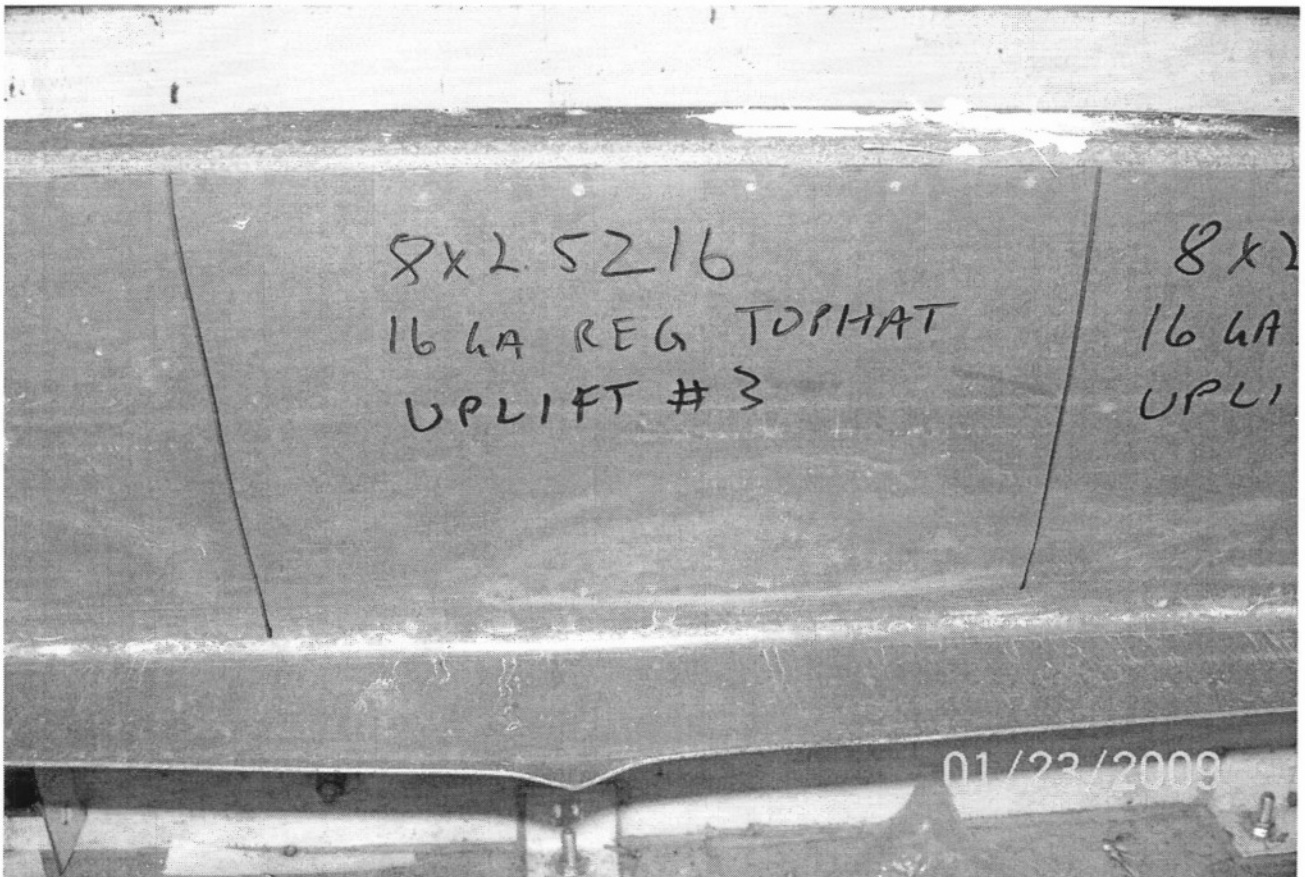 8X2.5Z16
16 GA REG TOPHAT
UPLIFT #3
8X2
16 GA
UPLI
01/23/2009